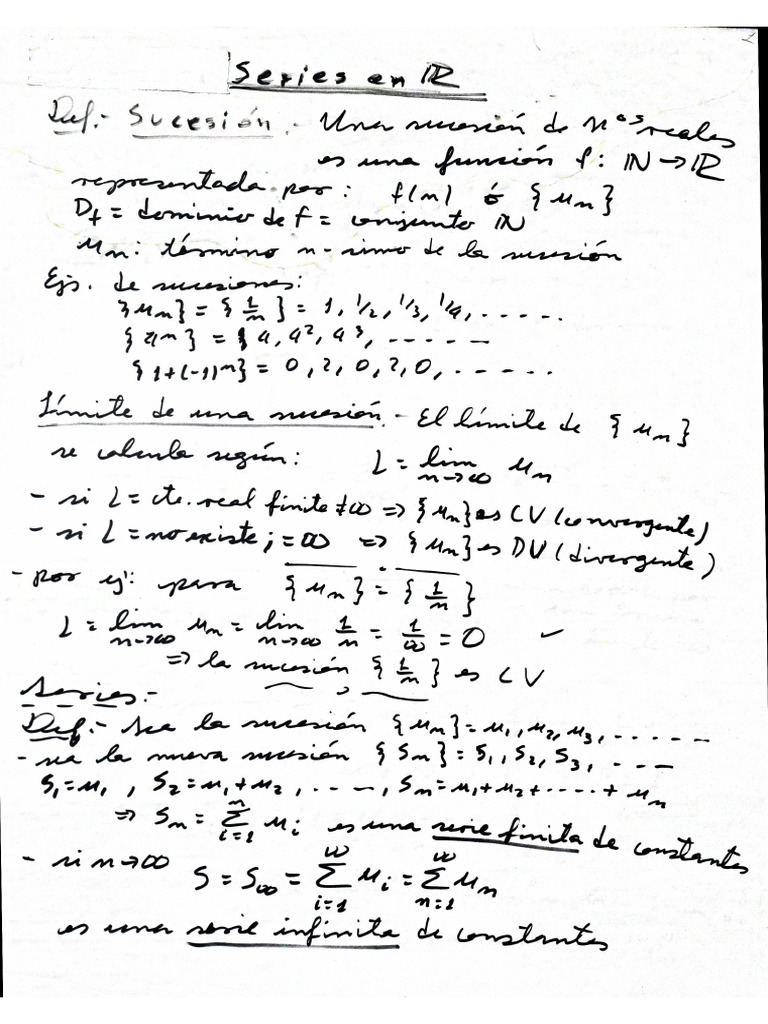 Series en ℝ
Def.- Sucesión.- Una sucesión de Nos reales
es una función f: ℕ → ℝ
representada por: f(n) ó {un}
Df = dominio de f = conjunto ℕ
un: término n-simo de la sucesión
Ejs. de sucesiones:
{un} = {1/n} = 1, 1/2, 1/3, 1/4, .....
{a^n} = {a, a², a³, ......
{1+(-1)^n} = 0, 2, 0, 2, 0, ......
Límite de una sucesión.- El límite de {un}
se calcula según: L = lim n→∞ un
- si L = cte. real finite ≠∞ => {un} es CV (convergente)
- si L = no existe; = ∞ => {un} es DV (divergente)
- por ej: para {un} = {1/n}
L = lim n→∞ un = lim n→∞ 1/n = 1/∞ = 0 ✓
=> la sucesión {1/n} es CV
Series:-
Def.- Sea la sucesión {un} = u1, u2, u3, ......
- sea la nueva sucesión {Sn} = S1, S2, S3, ....
S1 = u1, S2 = u1+u2, ...., Sn = u1+u2+.....+un
=> Sn = ∑ i=1 n ui es una serie finita de constantes
- si n→∞ S = S∞ = ∑ i=1 ∞ ui = ∑ n=1 ∞ un
es una serie infinita de constantes